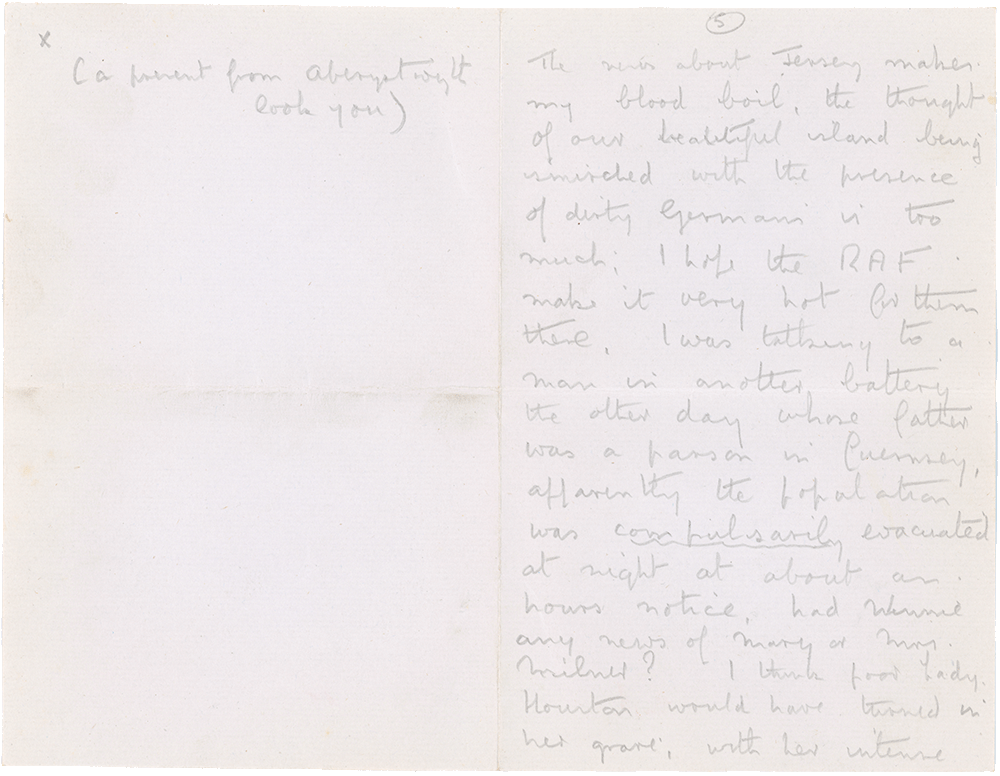 x
(a present from Aberystwyth
look you)
5
The news about Jersey makes
my blood boil, the thought
of our beautiful island being
smirched with the presence
of dirty Germans is too
much; I hope the RAF
make it very hot for them
there. I was talking to a
man in another battery
the other day whose father
was a parson in Guernsey,
apparently the population
was compulsarily evacuated
at night at about an
hours notice, had Winnie
any news of Mary or Mrs.
Milner? I think poor Lady
Houston would have turned in
her grave, with her intense